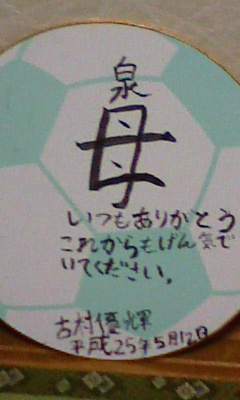 泉
母
いつもありがとう
これからもげん気で
いてください。
古村優輝
平成25年5月12日